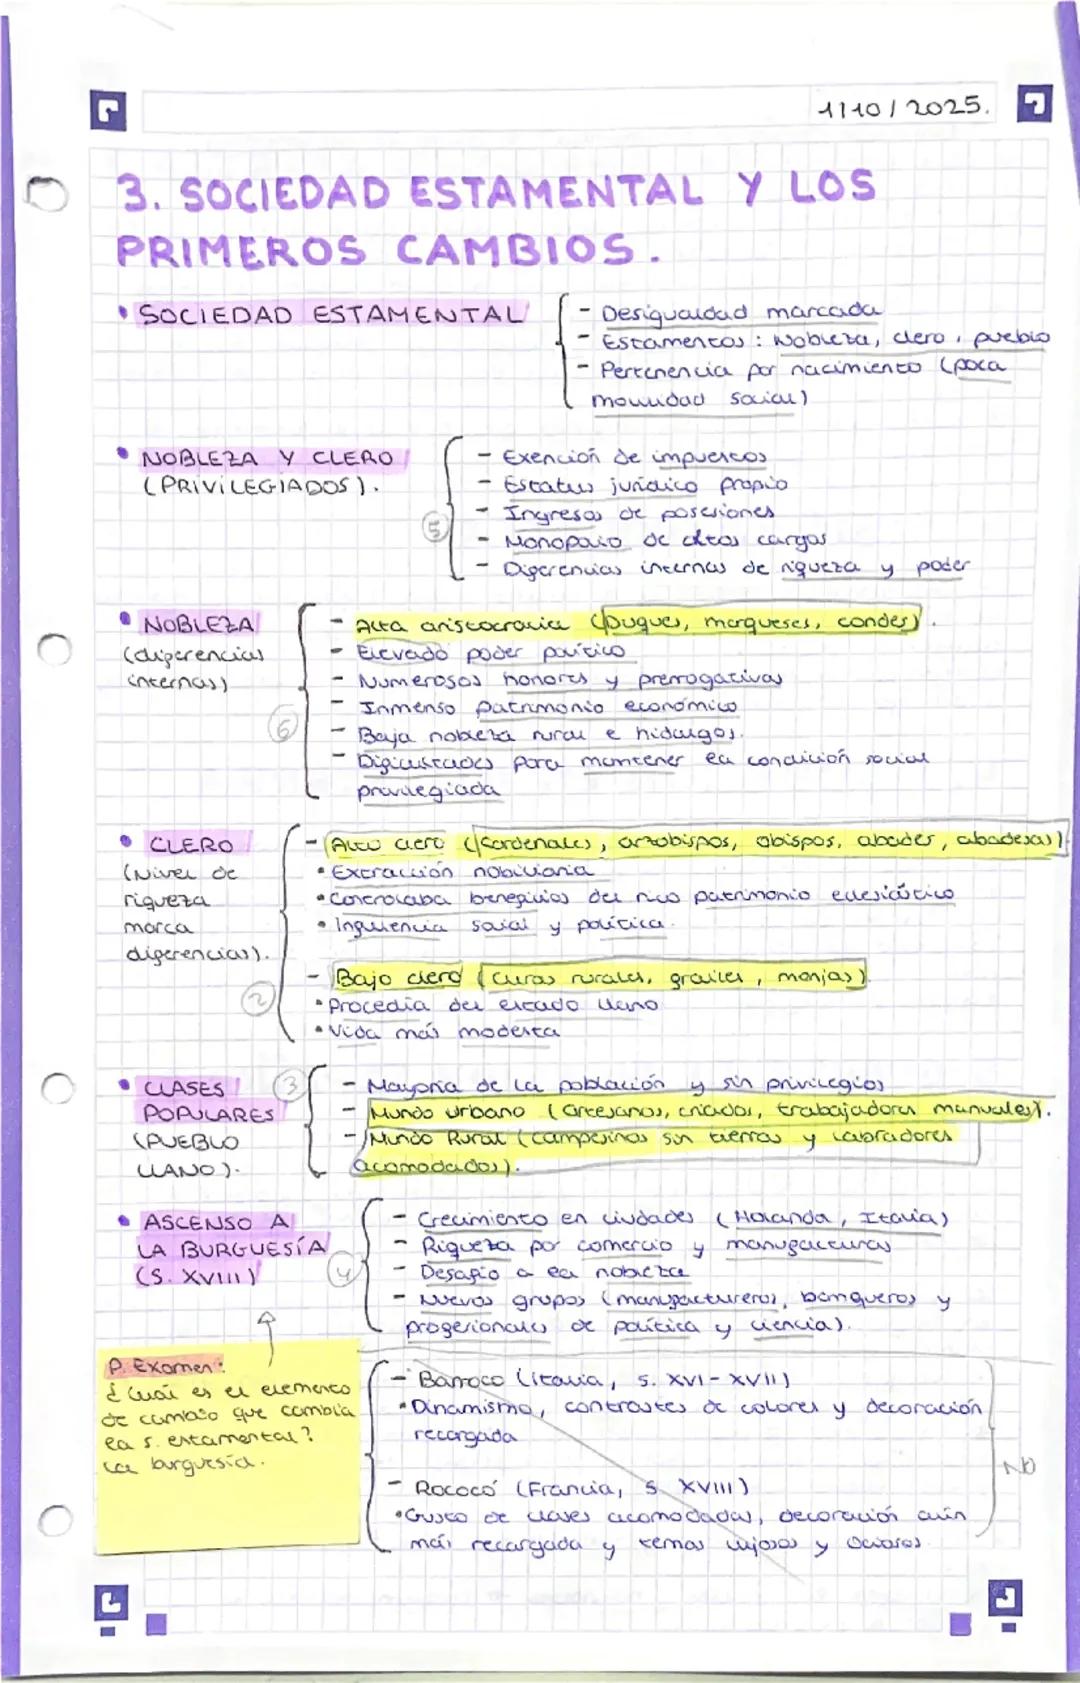 1/10/2025.
3. SOCIEDAD ESTAMENTAL Y LOS
PRIMEROS CAMBIOS.
• SOCIEDAD ESTAMENTAL
- Desigualdad marcada
- Estamentos: Nobleza, clero, pueblo
- Pertenencia por nacimiento (poca
movilidad social)
• NOBLEZA Y CLERO
(PRIVILEGIADOS).
5
- Exención de impuestos
- Estatus jurídico propio
- Ingresos de posesiones
- Monopolio de altos cargos
- Diferencias internas de riqueza y poder
• NOBLEZA
(diferencias
internas)
6
- Alta aristocracia (Duques, marqueses, condes).
- Elevado poder político
- Numerosos honores y prerrogativas
- Inmenso patrimonio económico
- Baja nobleza rural e hidalgos.
- Dificultades para mantener la condición social
privilegiada
• CLERO
(Nivel de
riqueza
marca
diferencias).
2
- Alto clero (Cardenales, arzobispos, obispos, abades, abadesas)
• Extracción nobiliaria
• Controlaba beneficios del rico patrimonio eclesiástico
• Influencia social y política.
- Bajo clero (curas rurales, frailes, monjas)
• Procedía del estado llano
• Vida más modesta
• CLASES
POPULARES
(PUEBLO
LLANO).
3
- Mayoría de la población y sin privilegios
- Mundo urbano (artesanos, criados, trabajadores manuales).
- Mundo Rural (campesinos sin tierras y labradores
acomodados).
• ASCENSO A
LA BURGUESÍA
(S. XVIII)
4
- Crecimiento en ciudades (Holanda, Italia)
- Riqueza por comercio y manufacturas
- Desafío a la nobleza
- Nuevos grupos (manufactureros, banqueros y
profesionales de política y ciencia).
P. Examen:
¿Cuál es el elemento
de cambio que cambia
la s. estamental?
La burguesía.
- Barroco (Italia, s. XVI-XVII)
• Dinamismo, contrastes de colores y decoración
recargada
- Rococó (Francia, S XVIII)
• Gusto de clases acomodadas, decoración aún
más recargada y temas lujosos y ociosos.
NO